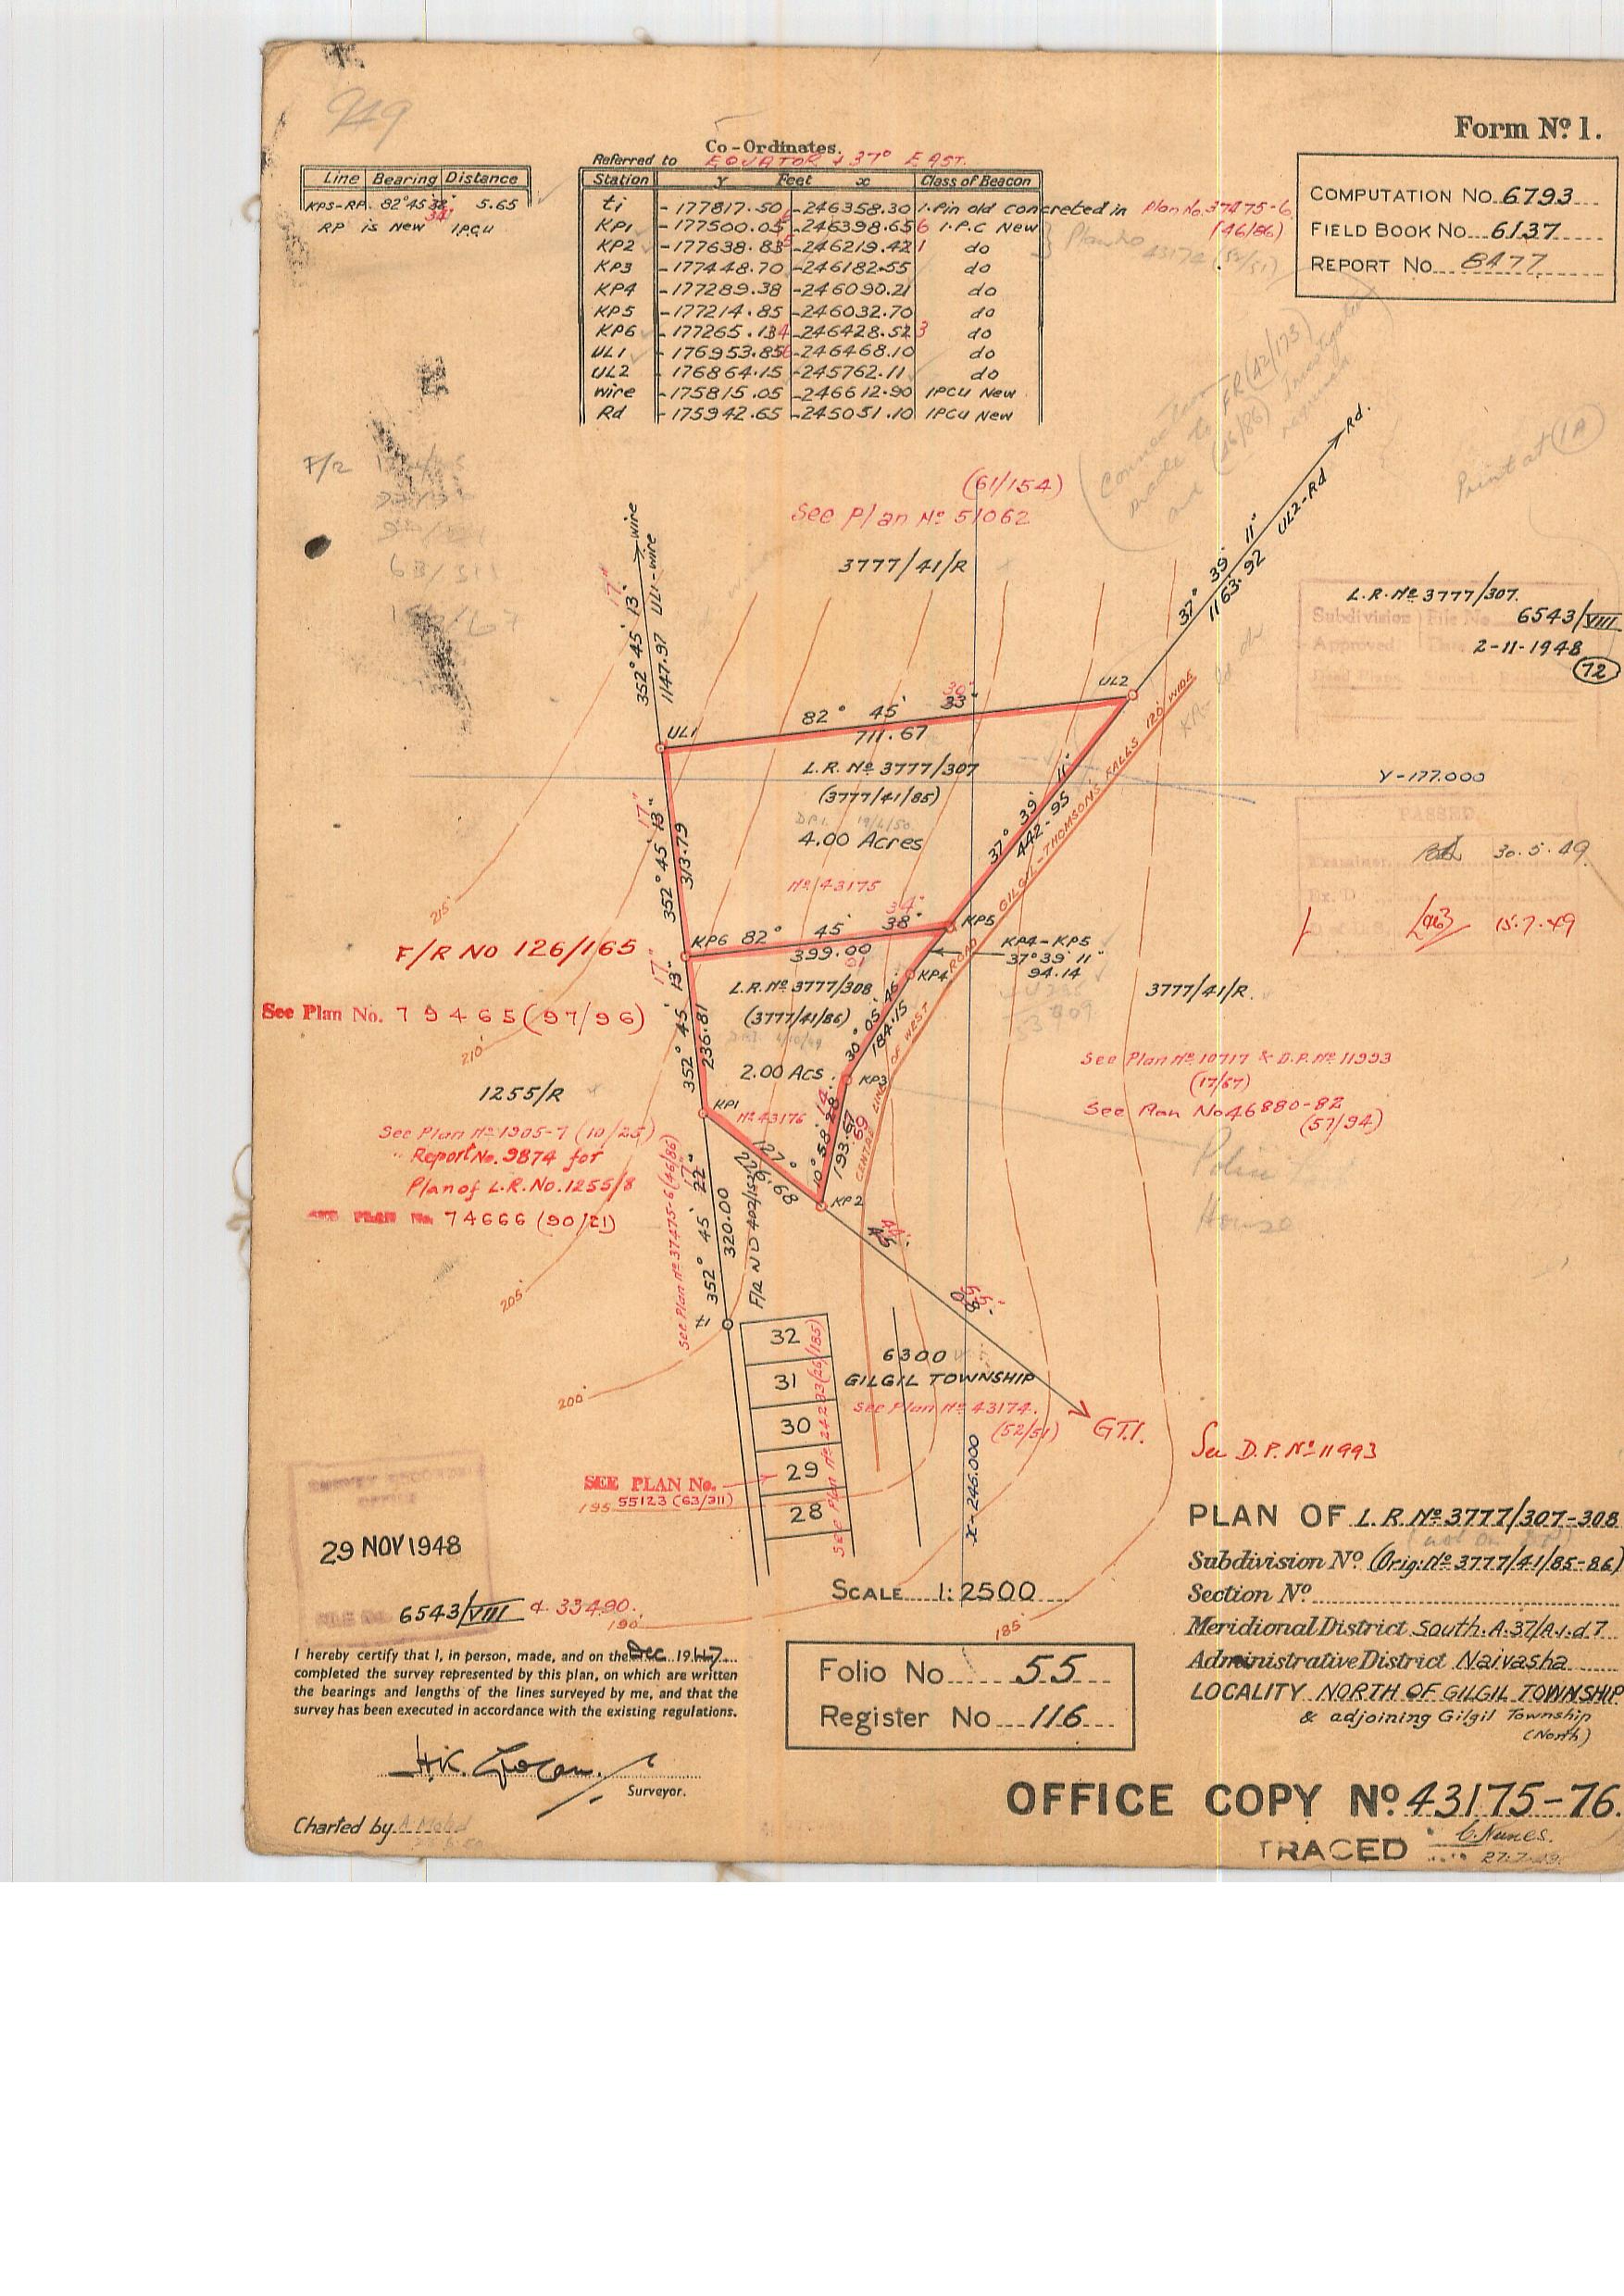 249
Form Nº 1.
Co-Ordinates.
Referred to EQUATOR & 37° EAST.
Line Bearing Distance
KP5-RP. 82°45' 38" 34" 5.65
RP is New I.P.C.U
Station y Feet x Class of Beacon
ti -177817.50 -246358.30 1.Pin old concreted in Plan No. 37475-6 (46/86)
KP1 -177500.05 -246398.65 6 I.P.C New
KP2 -177638.83 -246219.42 1 do
KP3 -177448.70 -246182.55 do
KP4 -177289.38 -246090.21 do
KP5 -177214.85 -246032.70 do
KP6 -177265.13 4 -246428.52 3 do
UL1 -176953.85 6 -246468.10 do
UL2 -176864.15 -245762.11 do
wire -175815.05 -246612.90 IPCU New
Rd -175942.65 -245051.10 IPCU New
Plan No 43174 (52/51)
COMPUTATION No. 6793
FIELD BOOK No. 6137
REPORT No. 8477
Connection made to FR (42/173) and (46/86)
Print at (1A)
F/R
(61/154)
See Plan Nº 51062
3777/41/R
wire
352° 45' 13" 17" UL1-wire
1147.97
Rd.
37° 39' 11" UL2-Rd
1163.92
L.R. Nº 3777/307.
Subdivision File No 6543/VIII
Approved Date 2-11-1948
72
UL1
UL2
82° 45' 33" 30"
711.67
L.R. Nº 3777/307
(3777/41/85)
D.P.I. 19/4/50
4.00 Acres
Nº 43175
352° 45' 13" 17"
313.79
37° 39' 11"
442.95
CENTRE LINE OF WEST ROAD GILGIL-THOMSON'S FALLS 120' WIDE
Y-177.000
PASSED
Examiner 30.5.49
15.7.49
215'
F/R NO 126/165
KP6 82° 45' 38" 34" KP5
399.00 01
KP4-KP5
37°39' 11"
94.14
KP4
L.R. Nº 3777/308
(3777/41/86)
2.00 Acs.
Nº 43176
30° 05' 45"
184.15
352° 45' 13" 17"
236.81
3777/41/R.
See Plan No. 79465 (97/96)
210'
1255/R
KP1
KP3
10° 58' 28" 14"
193.67 69
KP2
See Plan Nº 1905-7 (10/25)
Report No. 9874 for
Plan of L.R. No. 1255/8
SEE PLAN No. 74666 (90/21)
See Plan Nº 10717 & D.P. Nº 11993
(17/67)
See Plan No 46880-82
(57/94)
Police
House
See Plan Nº 37475-6 (46/86)
352° 45' 22" 17"
320.00
F/R NO 402/152
205'
ti
200'
32
31
30
29
28
See Plan Nº 24233 (26/185)
6300
GILGIL TOWNSHIP
See Plan Nº 43174.
(52/51)
G.T.I.
See D.P. Nº 11993
SEE PLAN No.
55123 (63/311)
195
x-246.000
29 NOV 1948
6543/VIII & 33490.
190'
185'
SCALE 1:2500
PLAN OF L.R. Nº 3777/307-308
Subdivision Nº (Orig: Nº 3777/41/85-86)
Section Nº
Meridional District South. A.37/A.1.d 7
Administrative District Naivasha
LOCALITY NORTH OF GILGIL TOWNSHIP
& adjoining Gilgil Township
(North)
I hereby certify that I, in person, made, and on the Dec. 1947
completed the survey represented by this plan, on which are written
the bearings and lengths of the lines surveyed by me, and that the
survey has been executed in accordance with the existing regulations.
Surveyor.
Folio No 55
Register No 116
OFFICE COPY Nº 43175-76.
Charted by A Mohd
TRACED C. Nunes.
27.7.49.